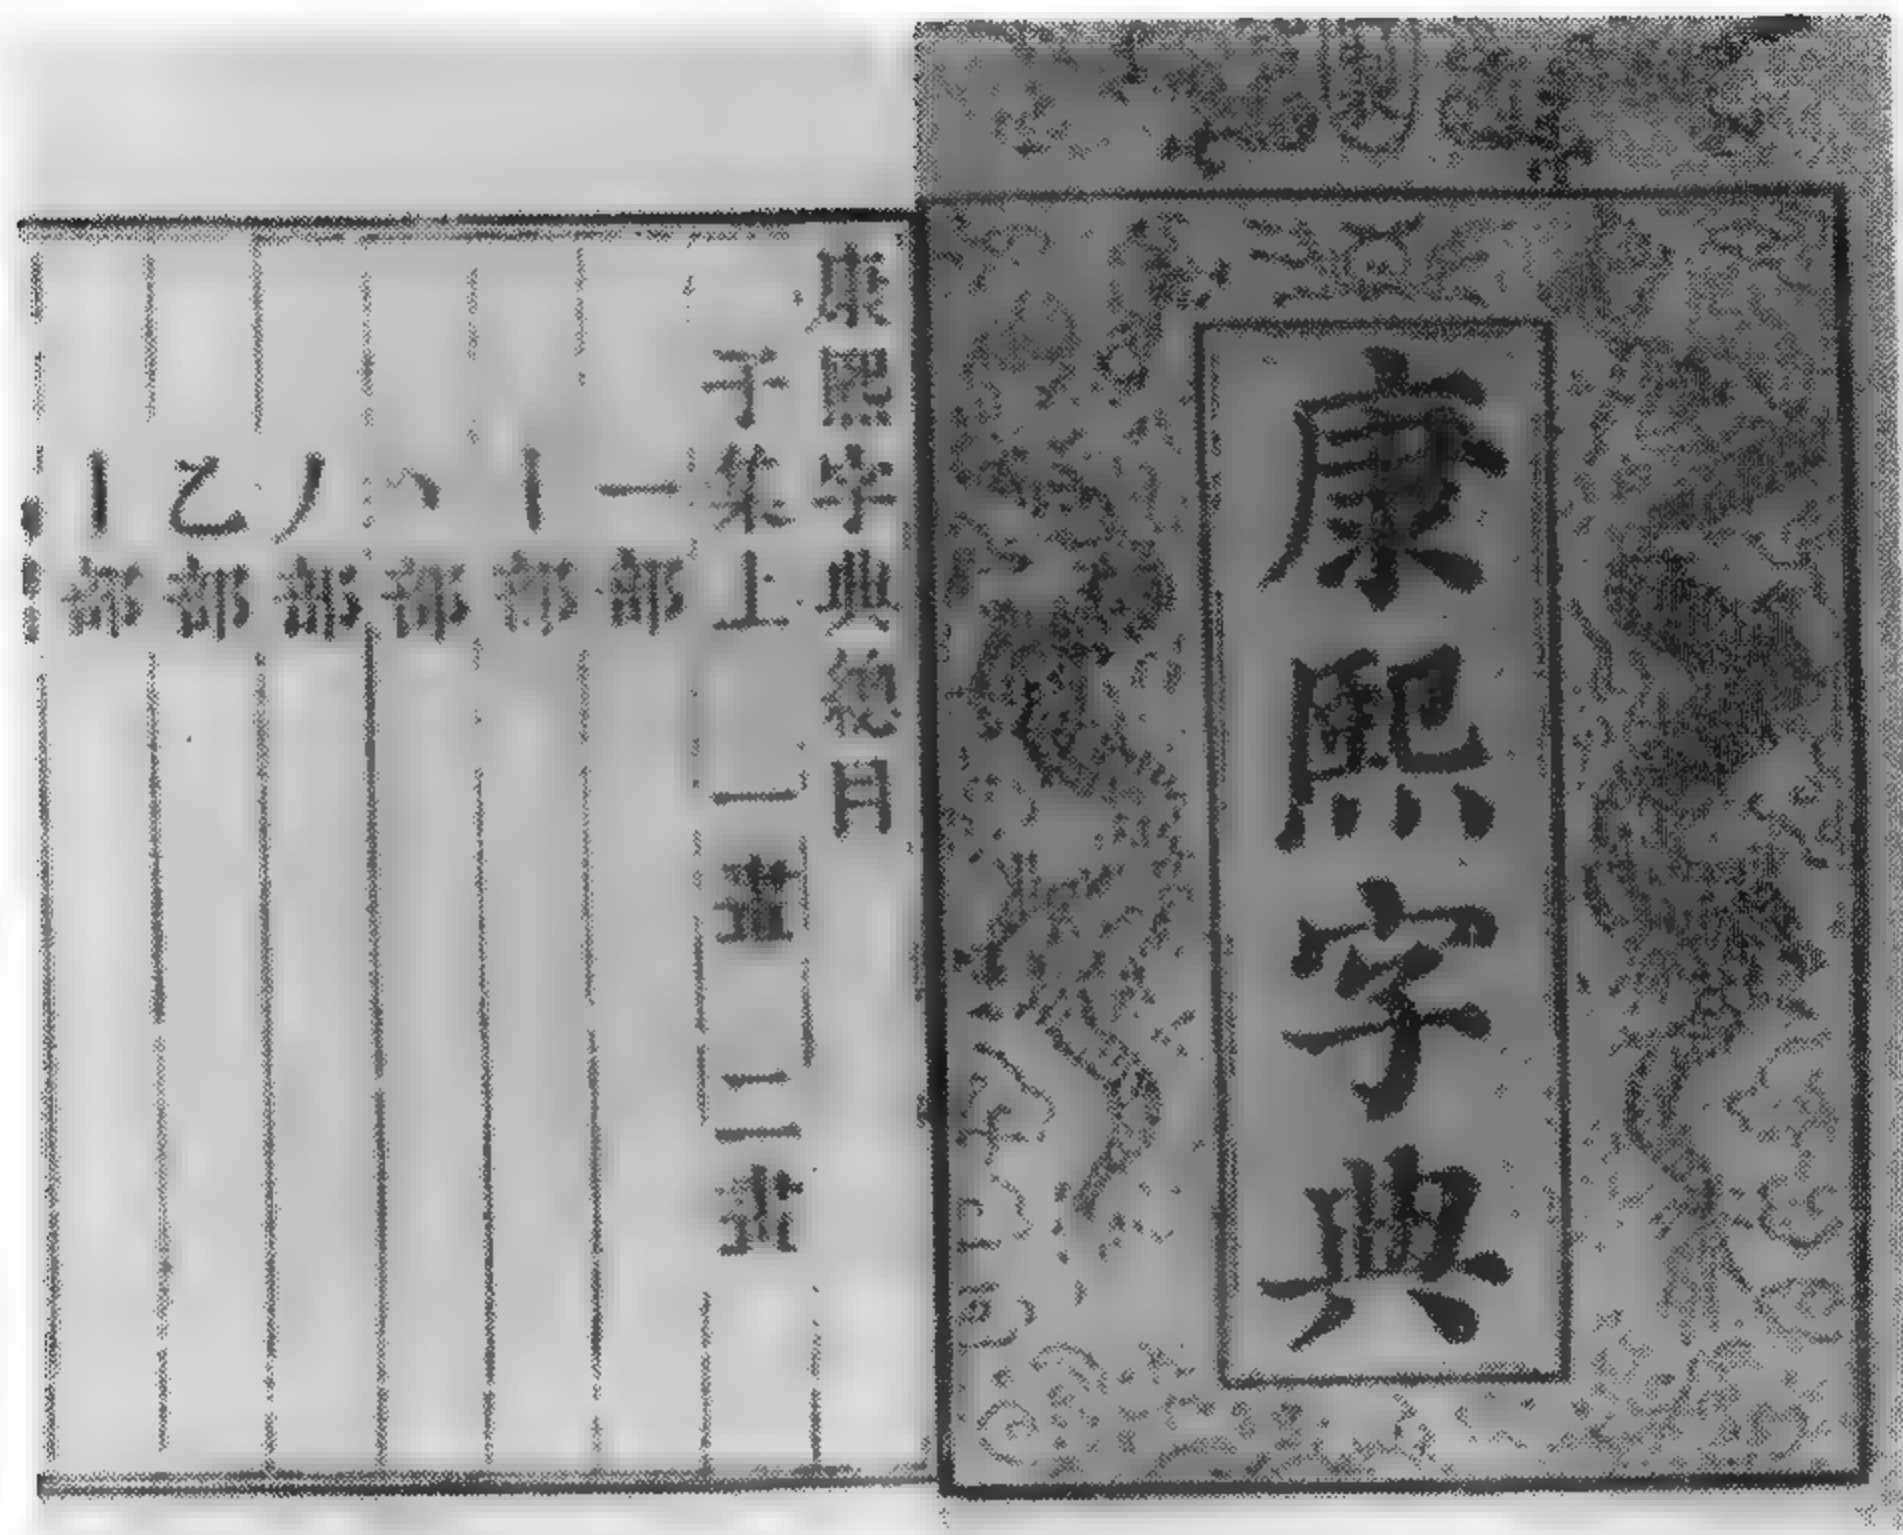 康熙字典
康熙字典總目
子集上 一畫 二畫
一部
丨部
丶部
丿部
乙部
亅部